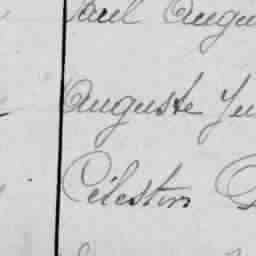 Paul Augu
Auguste Ju
Célestin